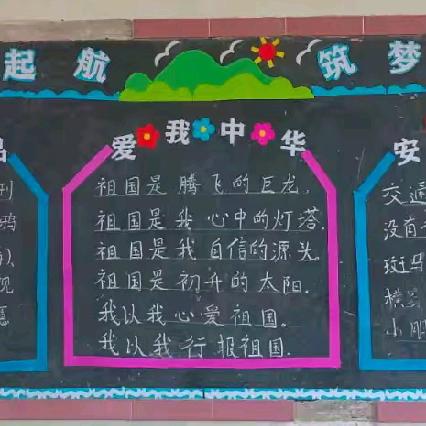 起航
筑梦
爱我中华
祖国是腾飞的巨龙,
祖国是我心中的灯塔.
祖国是我自信的源头.
祖国是初升的太阳.
我以我心爱祖国。
我以我行报祖国.
安
交通
没有
斑马
小朋